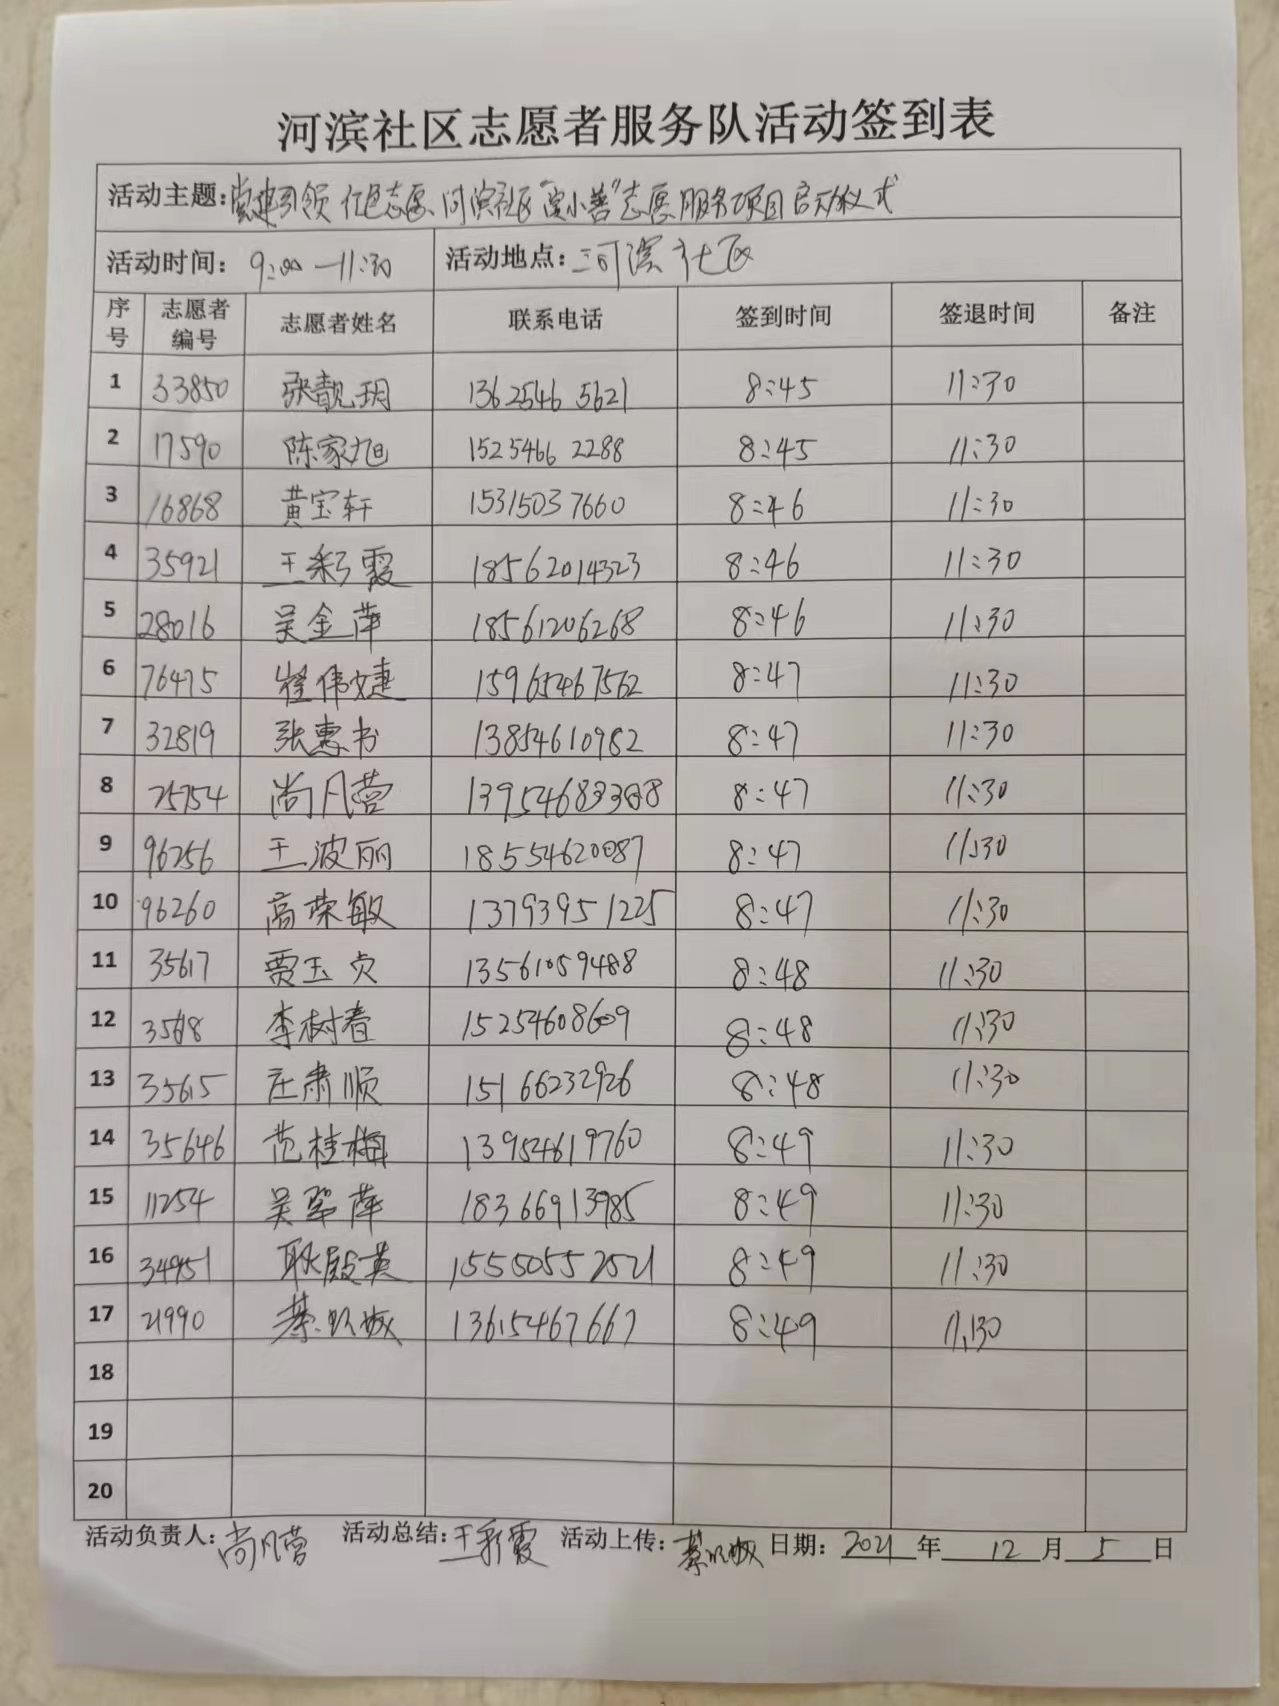 河滨社区志愿者服务队活动签到表
活动主题:党建引领 红色志愿、河滨社区"爱小善"志愿服务项目启动仪式
活动时间: 9:00—11:30 活动地点: 河滨社区
序号 志愿者编号 志愿者姓名 联系电话 签到时间 签退时间 备注
1 33850 张靓玥 13625466 5621 8:45 11:30
2 17590 陈家旭 1525466 2288 8:45 11:30
3 16868 黄宝轩 15315037660 8:46 11:30
4 35921 王彩霞 18562014323 8:46 11:30
5 28016 吴金萍 18561206268 8:46 11:30
6 76475 崔伟婕 15965467562 8:47 11:30
7 32819 张惠书 13854610982 8:47 11:30
8 25754 尚凡营 8:47 11:30
9 96256 王波丽 18554620087 8:47 11:30
10 96260 高荣敏 13793951225 8:47 11:30
11 35617 贾玉贞 13561059488 8:48 11:30
12 李树春 15254608609 8:48 11:30
13 35615 庄肃顺 15166232926 8:48 11:30
14 35646 范桂梅 13954619760 8:49 11:30
15 11254 吴翠萍 18366913985 8:49 11:30
16 34951 耿殿英 15550552521 8:49 11:30
17 21990 13615467667 8:49 11:30
18
19
20
活动负责人:尚凡营 活动总结:王彩霞 活动上传: 日期: 2021 年 12 月 5 日